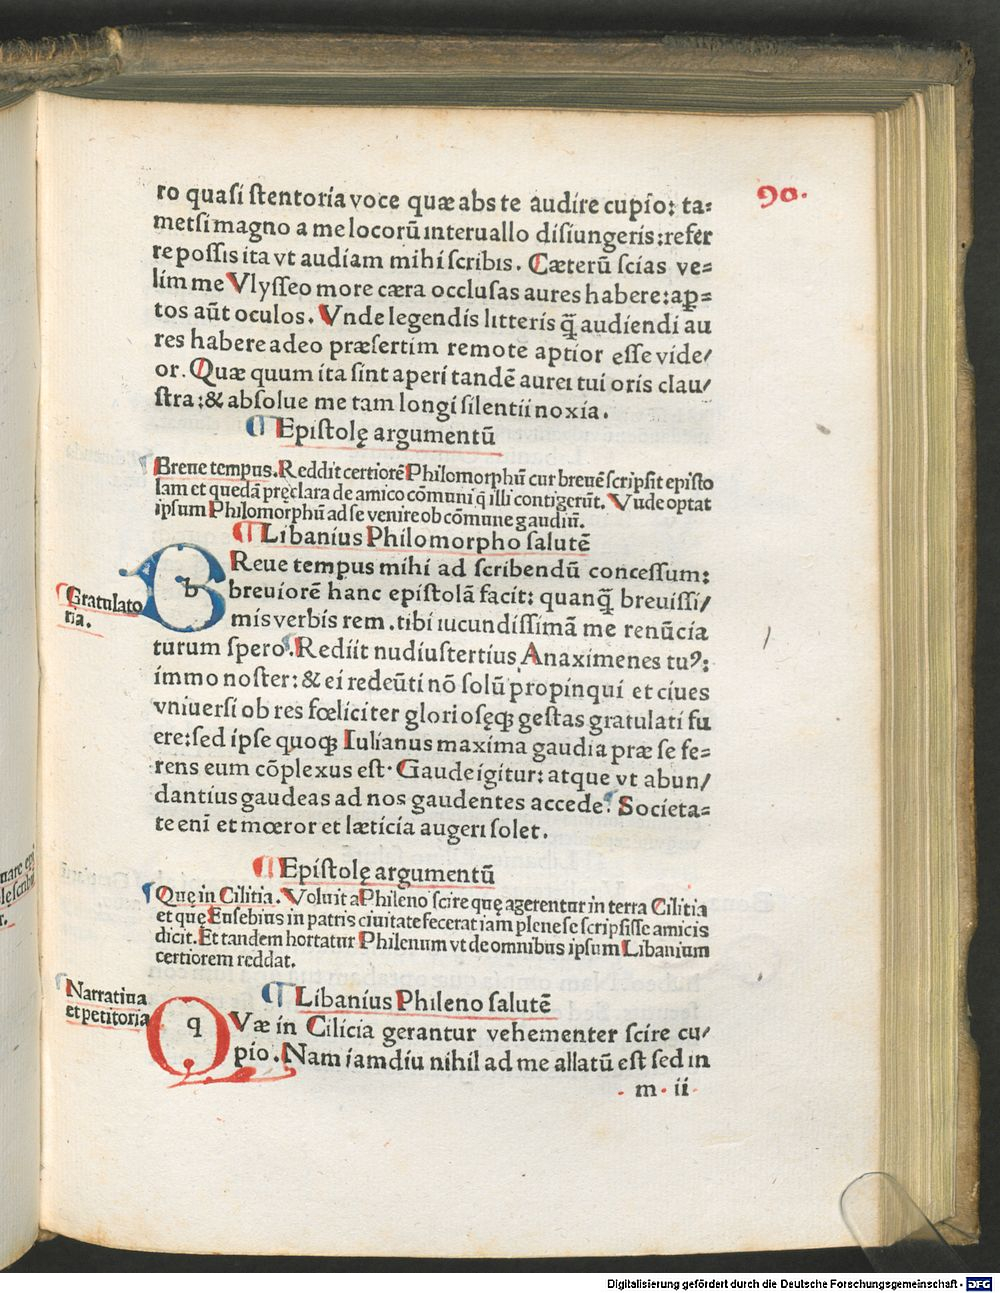 90.
ro quasi stentoria voce quæ abs te audire cupio: ta=
metsi magno a me locorū interuallo disiungeris: refer
re possis ita vt audiam mihi scribis. Cæterū scias ve=
lim me Vlysseo more cæra occlusas aures habere: ap=
tos aūt oculos. Vnde legendis litteris q̄ audiendi au
res habere adeo præsertim remotē aptior esse vide/
or. Quæ quum ita sint aperi tandē aurei tui oris clau/
stra: & absolue me tam longi silentii noxia.
¶ Epistolę argumentū
¶ Breue tempus. Reddit certiorē Philomorphū cur breuē scripsit episto
lam et quedā pręclara de amico cōmuni q̄ illi contigerūt. Vnde optat
ipsum Philomorphū ad se venire ob cōmune gaudiū.
¶ Libanius Philomorpho salutē
¶ Gratulato
ria.
b Reue tempus mihi ad scribendū concessum:
breuiorē hanc epistolā facit: quanq̄ breuissi/
mis verbis rem .tibi iucundissimā me renūcia
turum spero. Rediit nudiustertius Anaximenes tuꝰ:
immo noster: & ei redeūti nō solū propinqui et ciues
vniuersi ob res fœliciter gloriosęqꝫ gestas gratulati fu
ere: sed ipse quoqꝫ Iulianus maxima gaudia præ se fe=
rens eum cōplexus est. Gaude igitur: atque vt abun/
dantius gaudeas ad nos gaudentes accede. Societa=
te eni et mœror et læticia augeri solet.
¶ Epistolę argumentū
¶ Que in Cilitia. Voluit a Phileno scire quę agerentur in terra Cilitia
et que Eusebius in patris ciuitate fecerat iam plene se scripsisse amicis
dicit. Et tandem hortatur Philenum vt de omnibus ipsum Libanium
certiorem reddat.
¶ Narratiua
et petitoria
¶ Libanius Phileno salutē
q Væ in Cilicia gerantur vehementer scire cu/
pio. Nam iamdiu nihil ad me allatū est sed in
m ii
Digitalisierung gefördert durch die Deutsche Forschungsgemeinschaft - DFG